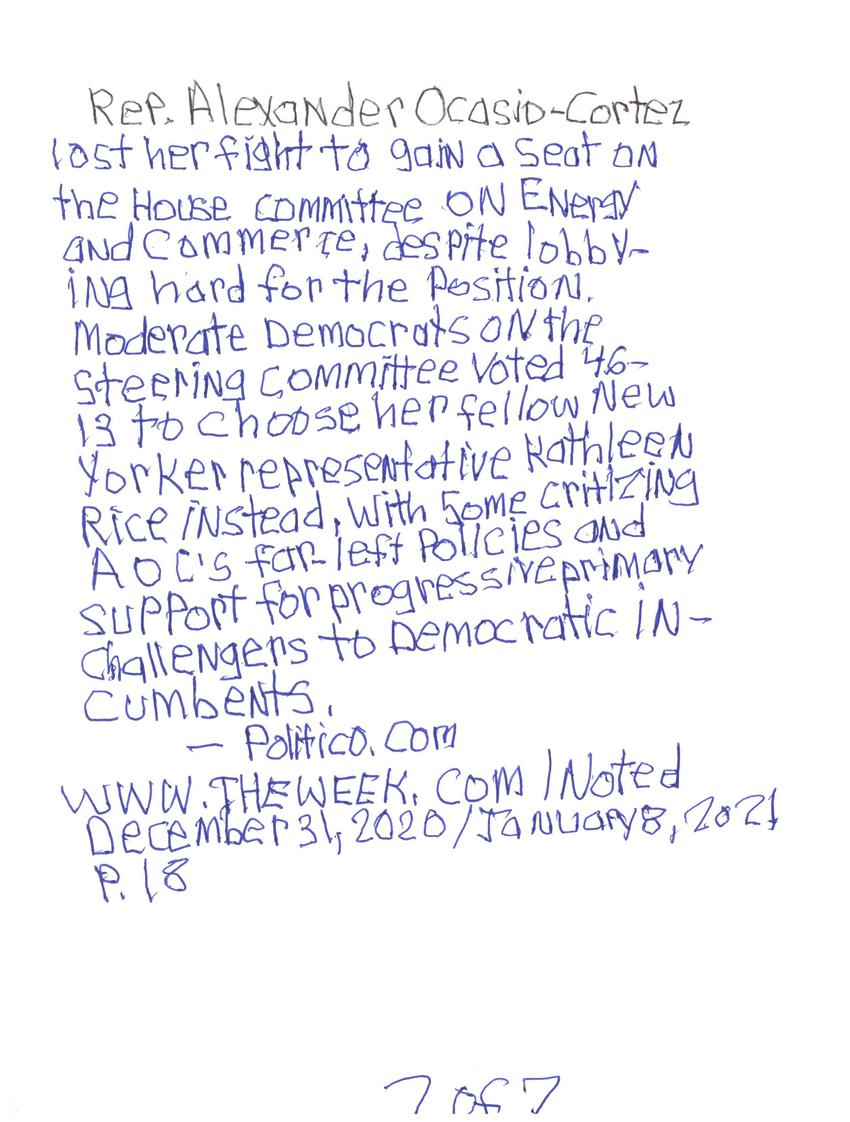 Rep. Alexander Ocasio-Cortez
lost her fight to gain a seat on
the House committee on Energy
and Commerce, despite lobby-
ing hard for the position.
Moderate Democrats on the
steering committee voted 46-
13 to choose her fellow New
Yorker representative Kathleen
Rice instead, with some critizing
AOC's far-left policies and
support for progressive primary
challengers to Democratic in-
cumbents.
— Politico.com
WWW.THEWEEK.COM/Noted
December 31, 2020/January 8, 2021
P. 18
7 of 7